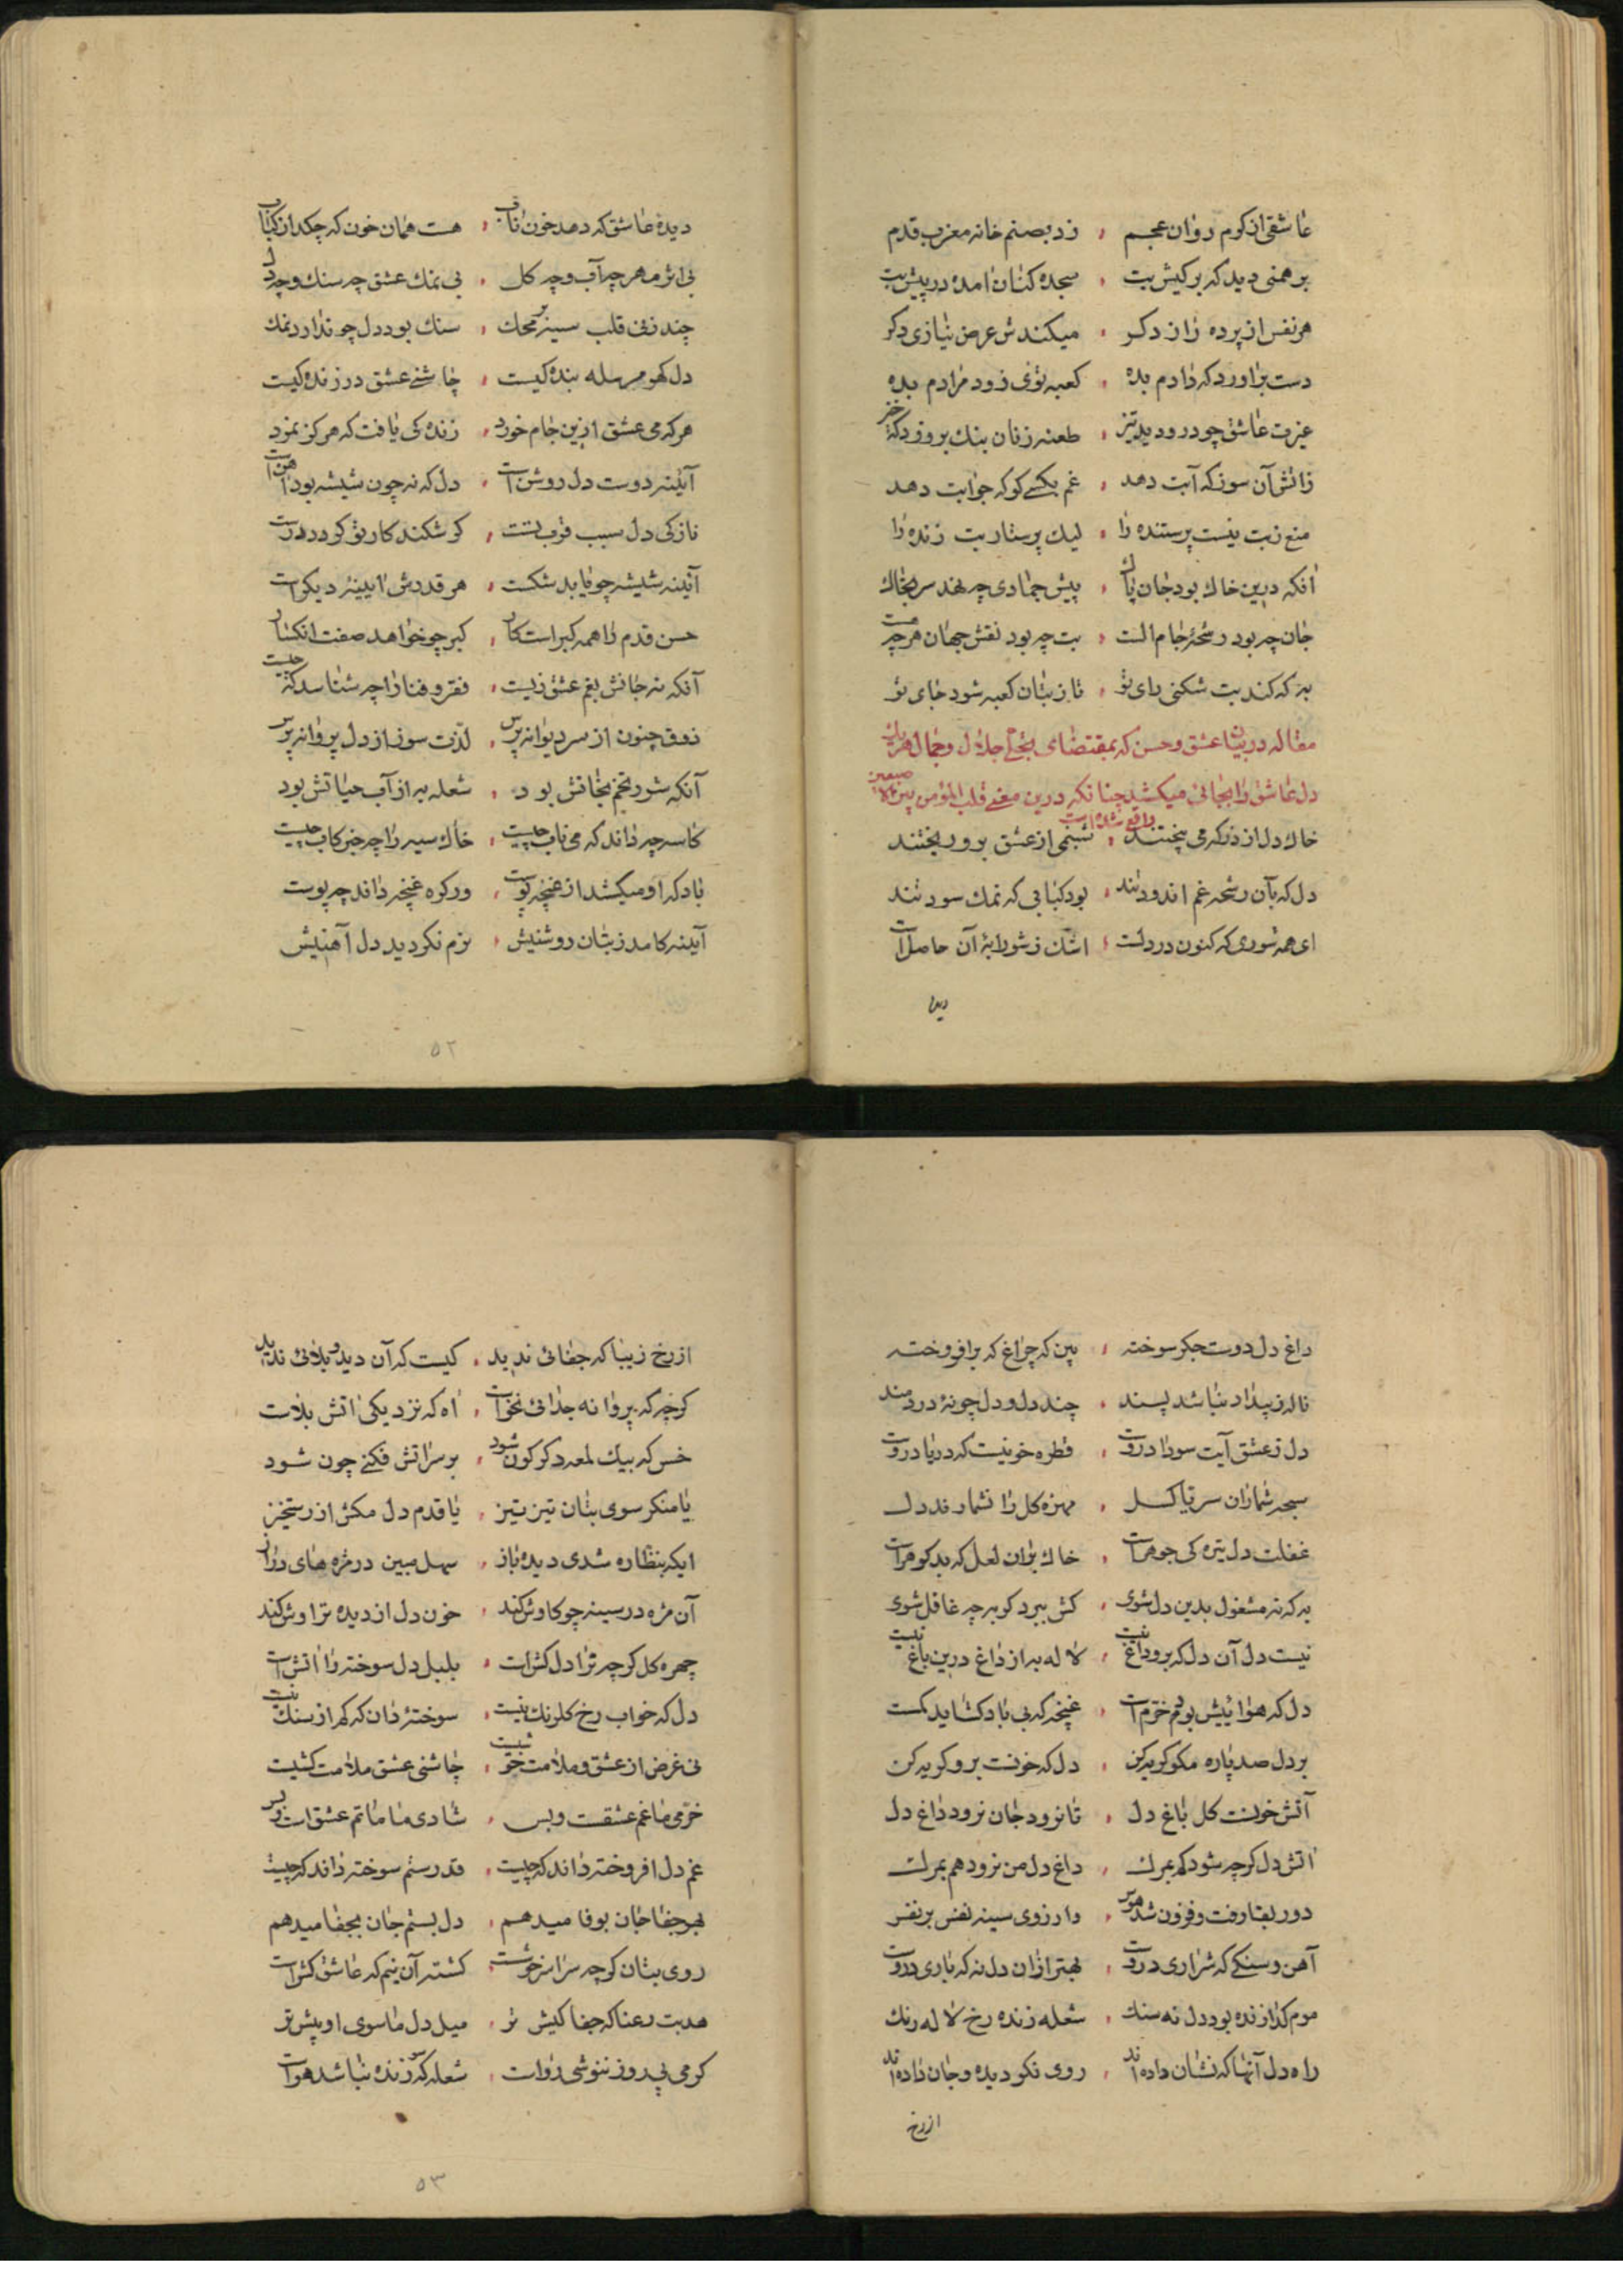 عاشقی از کرم روان عجم ، زد بصنم خانه مغرب قدم
برهمنی دید که بر کیش بت ، سجده کنان امده در پیش بت
هر نفس از پرده راز دکر ، میکندش عرض نیازی دکر
دست براورد که دادم بده ، کعبه توی زود مرادم بده
غیرت عاشق چو درو دید تیز ، طعنه زنان بنک بروزد که خیز
زاتش آن سوز که آبت دهد ، غم بکسی کو که جوابت دهد
منع ز بت نیست پرستنده را ، لیک پرستار بت زنده را
انکه درین خاک بود جان پاک ، پیش جمادی چه نهد سر بخاک
جان چه بود رشحهٔ جام الست ، بت چه بود نقش جهان هرچه هست
به که کند بت شکنی رای تو ، تا ز بتان کعبه شود جای تو
مقاله در بیان عشق و حسن که بمقتضای تجلی جلال و جمال هر زمان
دل عاشق را بجائی میکشد چنانکه درین معنی قلب المؤمن بین الاصبعین
واقع شده است
خاک دل از در که می پختند ، شبنمی از عشق برو ریختند
دل که بآن رشحه غم اندود شد ، بود کبابی که نمک سود شد
ای همه شوری که کنون در دلست ، اشک ز شورابهٔ آن حاصل است
دیده
دیده عاشق که دهد خون ناب ، هست همان خون که چکد از کباب
بی اثر مهر چه آب و چه کل ، بی نمک عشق چه سنک و چه دل
چند زنی قلب سیه بر محک ، سنک بود دل چو ندارد نمک
دل کهر مرسله بندهٔ کیست ، چاشنی عشق در زنده کیست
هر که می عشق ازین جام خورد ، زنده کی یافت که هرکز نمرد
آینه دوست دل روشن است ، دل که نه چون شیشه بود آهن است
نازکی دل سبب قرب تست ، کر شکند کار تو کردد درست
آینه شیشه چو یابد شکست ، هر قدرش ایینهٔ دیکر است
حسن قدم را همه کبر است کار ، کبر چو خواهد صفت انکسار
آنکه نه جانش بغم عشق زیست ، فقر و فنا را چه شناسد که چیست
ذوق جنون از سر دیوانه پرس ، لذت سوز از دل پروانه پرس
آنکه شور تخم نجاتش بود ، شعله به از آب حیاتش بود
کاسه چه داند که می ناب چیست ، خاک سیه را چه خبر کاب چیست
باد که او میکشد از غنچه پوست ، ور کره غنچه داند چه پوست
آینه کامد ز بتان روشنیش ، نرم نکردید دل آهنیش
۵۲
داغ دل دوست جکر سوخته ، بین که چراغ که برافروخته
ناله ز بیداد نباشد پسند ، چند دل و دل چو نهٔ دردمند
دل ز عشق آیت سودا دروست ، قطره خونیست که دریا دروست
سبحه شماران سر تا کسل ، مهره کل را نشمارند دل
غفلت دل تیره کی جوهر است ، خاک بران لعل که بد کوهر است
به که نه مشغول بدین دل شوی ، کش ببرد کربه چه غافل شوی
نیست دل آن دل که برو داغ نیست ، لاله به از داغ درین باغ نیست
دل که هوائیش بود خرم است ، غنچه که بی باد کشاید کمست
بر دل صد پاره مکو کریه کن ، دل که خونست برو کریه کن
آتش خونست کل باغ دل ، تا نرود جان نرود داغ دل
اتش دل کرچه شود کم بمرک ، داغ دل من نرود هم بمرک
دور بقا رفت و فزون شد هوس ، وارزوی سینه نفس بر نفس
آهن و سنکی که شراری دروست ، بهتر ازان دل نه که یاری دروست
موم کدازنده بود دل نه سنک ، شعله زنده رخ لاله رنک
راه دل آنها که نشان داده اند ، روی نکو دیده و جان داده اند
از رخ
از رخ زیبا که جفائی ندید ، کیست که آن دید و بلائی ندید
کرچه که پروانه جدائی نخواست ، اه که نزدیکی اتش بلاست
خس که بیک لمعه دکرکون شود ، بر سر اتش فکنی چون شود
یا منکر سوی بتان تیز تیز ، یا قدم دل مکش از رستخیز
ایکه بنظاره شدی دیده باز ، سهل مبین در مژه های دراز
آن مژه در سینه چو کاوش کند ، خون دل از دیده تراوش کند
چهره کل کرچه ترا دلکش است ، بلبل دل سوخته را اتش است
دل که خواب رخ کلرنک نیست ، سوختهٔ دان که کم از سنک نیست
نی غرض از عشق و ملامت خوشیست ، چاشنی عشق ملامت کشیست
خرمی ما غم عشقست و بس ، شادی ما ماتم عشق است و بس
غم دل افروخته داند که چیست ، قدر ستم سوخته داند که چیست
بهر جفا جان بوفا میدهم ، دل بستم جان بجفا میدهم
روی بتان کرچه سراسر خوشست ، کشته آن نیم که عاشق کش است
هر بت رعنا که جفا کیش تر ، میل دل ما سوی او بیش تر
کرمی پی روز ننوشی رواست ، شعله که سوزنده نباشد هواست
۵۳